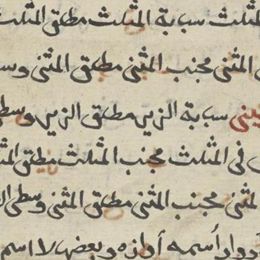 المثلث سبابة المثلث مطلق المثلث
المثنى مجنب المثنى مطلق المثنى وسـ
سبابة الزير مطلق الزير وسطى
فى المثلث مجنب المثلث مطلق المثـ
المثنى مجنب المثنى مطلق المثنى وسطى
أسمه أوازه وبعض